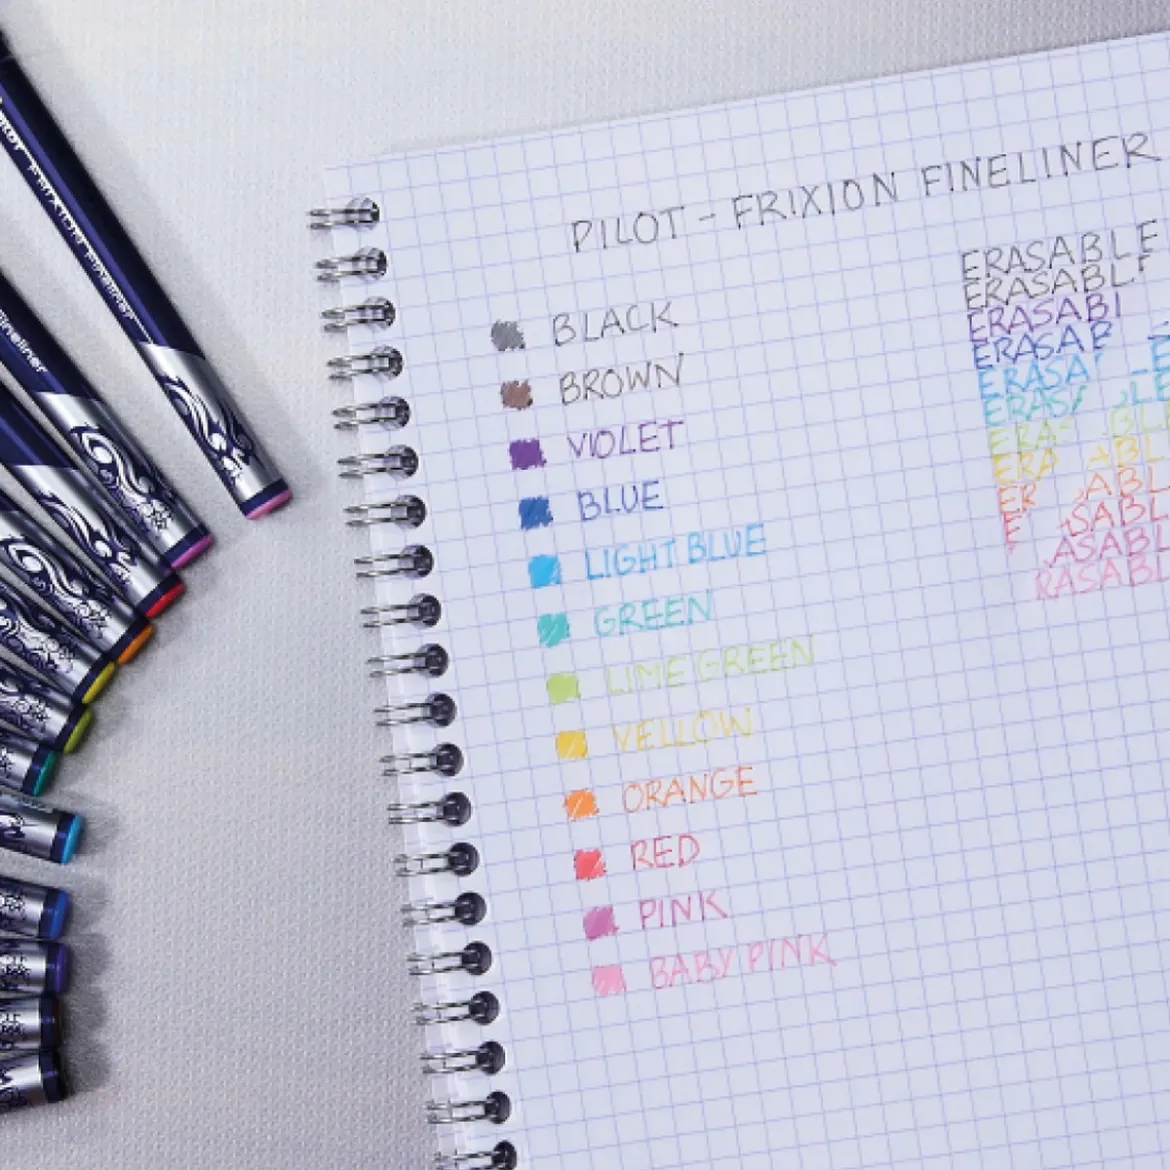 PILOT - FRIXION FINELINER
BLACK
BROWN
VIOLET
BLUE
LIGHT BLUE
GREEN
LIME GREEN
YELLOW
ORANGE
RED
PINK
BABY PINK
ERASABLE
ERASABLE
ERASAB
ERASAB
ERASA
ERAS LE
ERA BLE
ERA ABL
ER ABL
E SABL
ASABL
RASABL
PILOT FRIXION Fineliner
Fineliner